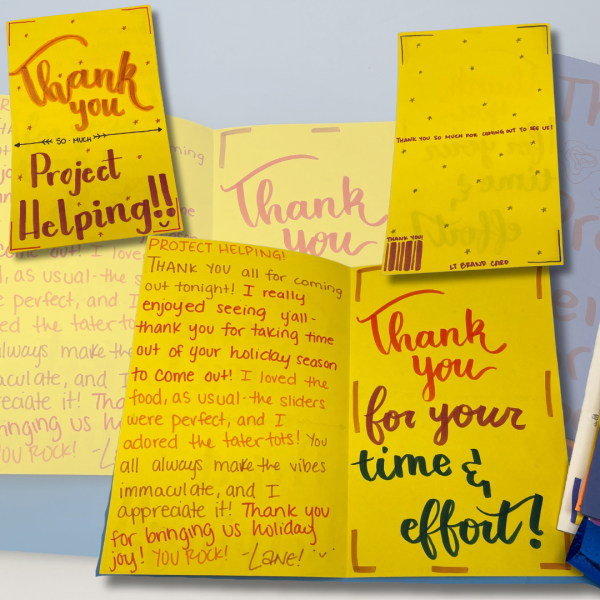 Thank
you
SO · MUCH
Project
Helping!!
THANK YOU SO MUCH FOR COMING OUT TO SEE US!
THANK YOU!
LT BRAND CARD
PROJECT HELPING!
THANK YOU all for coming
out tonight! I really
enjoyed seeing y'all-
thank you for taking time
out of your holiday season
to come out! I loved the
food, as usual-the sliders
were perfect, and I
adored the tater tots! You
all always make the vibes
immaculate, and I
appreciate it! Thank you
for bringing us holiday
joy! YOU ROCK! -LANE!
Thank
you
for your
time &
effort!
Thank
you